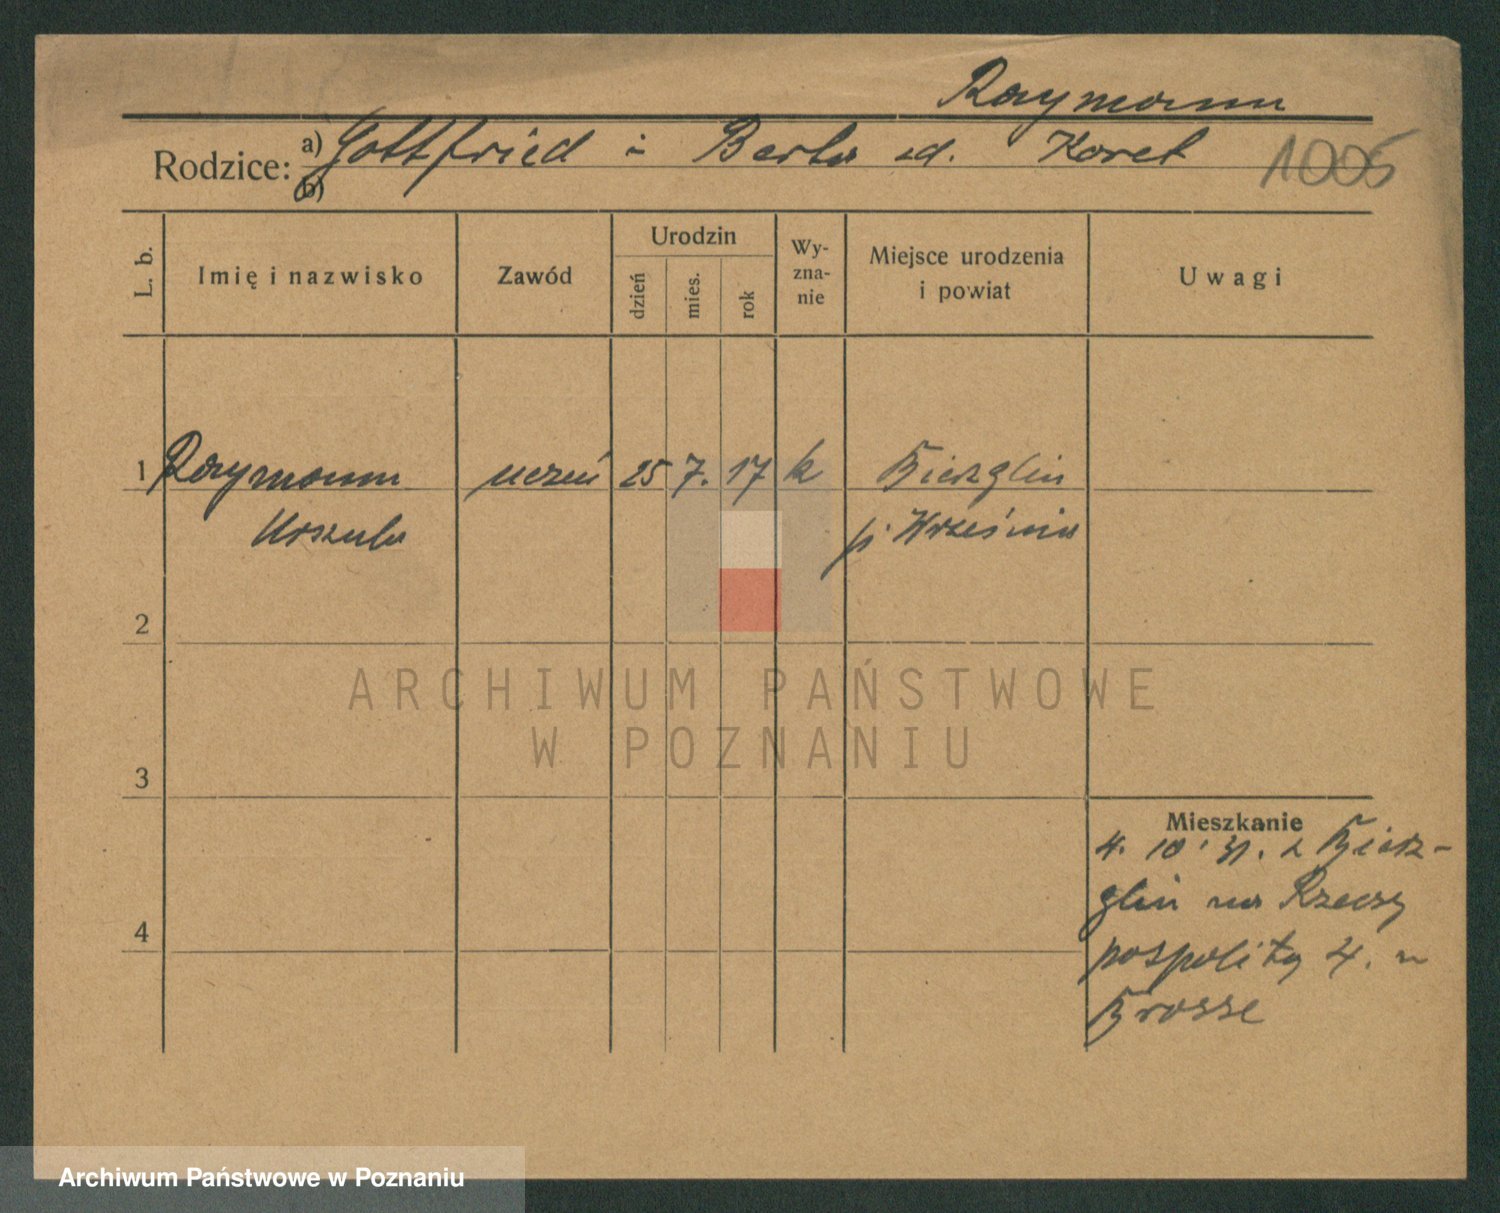 Raymann
Rodzice: a) Gottfried i Berta zd. Koret 1005
b)
L. b. Imię i nazwisko Zawód Urodzin dzień mies. rok Wy-zna-nie Miejsce urodzenia i powiat Uwagi
1 Raymann uczeń 25 7. 17 k Bierzglin
Urszula p. Września
2
ARCHIWUM PAŃSTWOWE
W POZNANIU
3
Mieszkanie
4. 10. 31. z Bierz-
glin na Rzeczy
4
pospolitą 4. u
Brosse
Archiwum Państwowe w Poznaniu